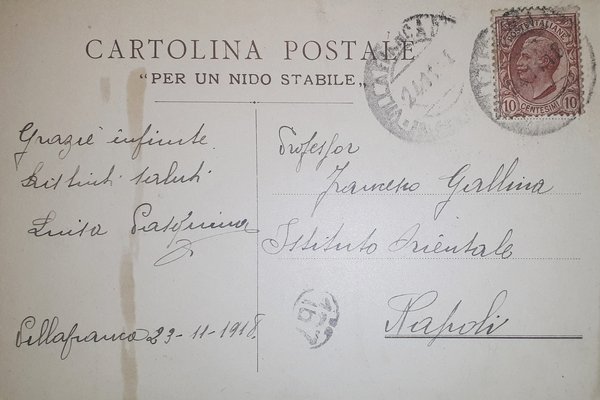 CARTOLINA POSTALE
"PER UN NIDO STABILE"
POSTE ITALIANE
10 CENTESIMI 10
Grazie infinite.
Distinti saluti
Luisa
Villafranca 23-11-1918.
Professor
Francesco Gallina
Istituto Orientale
Napoli